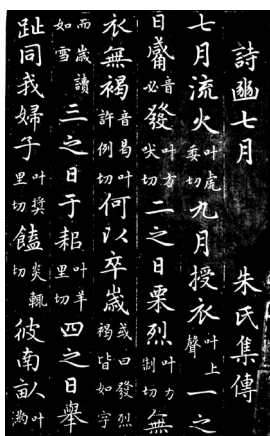 詩豳七月 朱氏集傳
七月流火叶虎委切九月授衣叶上聲一之
日觱音必發叶方吠切二之日栗烈叶力制切無
衣無褐音曷叶許例切何以卒歲或曰發烈褐皆如字
而歲讀如雪三之日于耜叶羊里切四之日舉
趾同我婦子叶奬里切饁炎輒切彼南畝叶滿